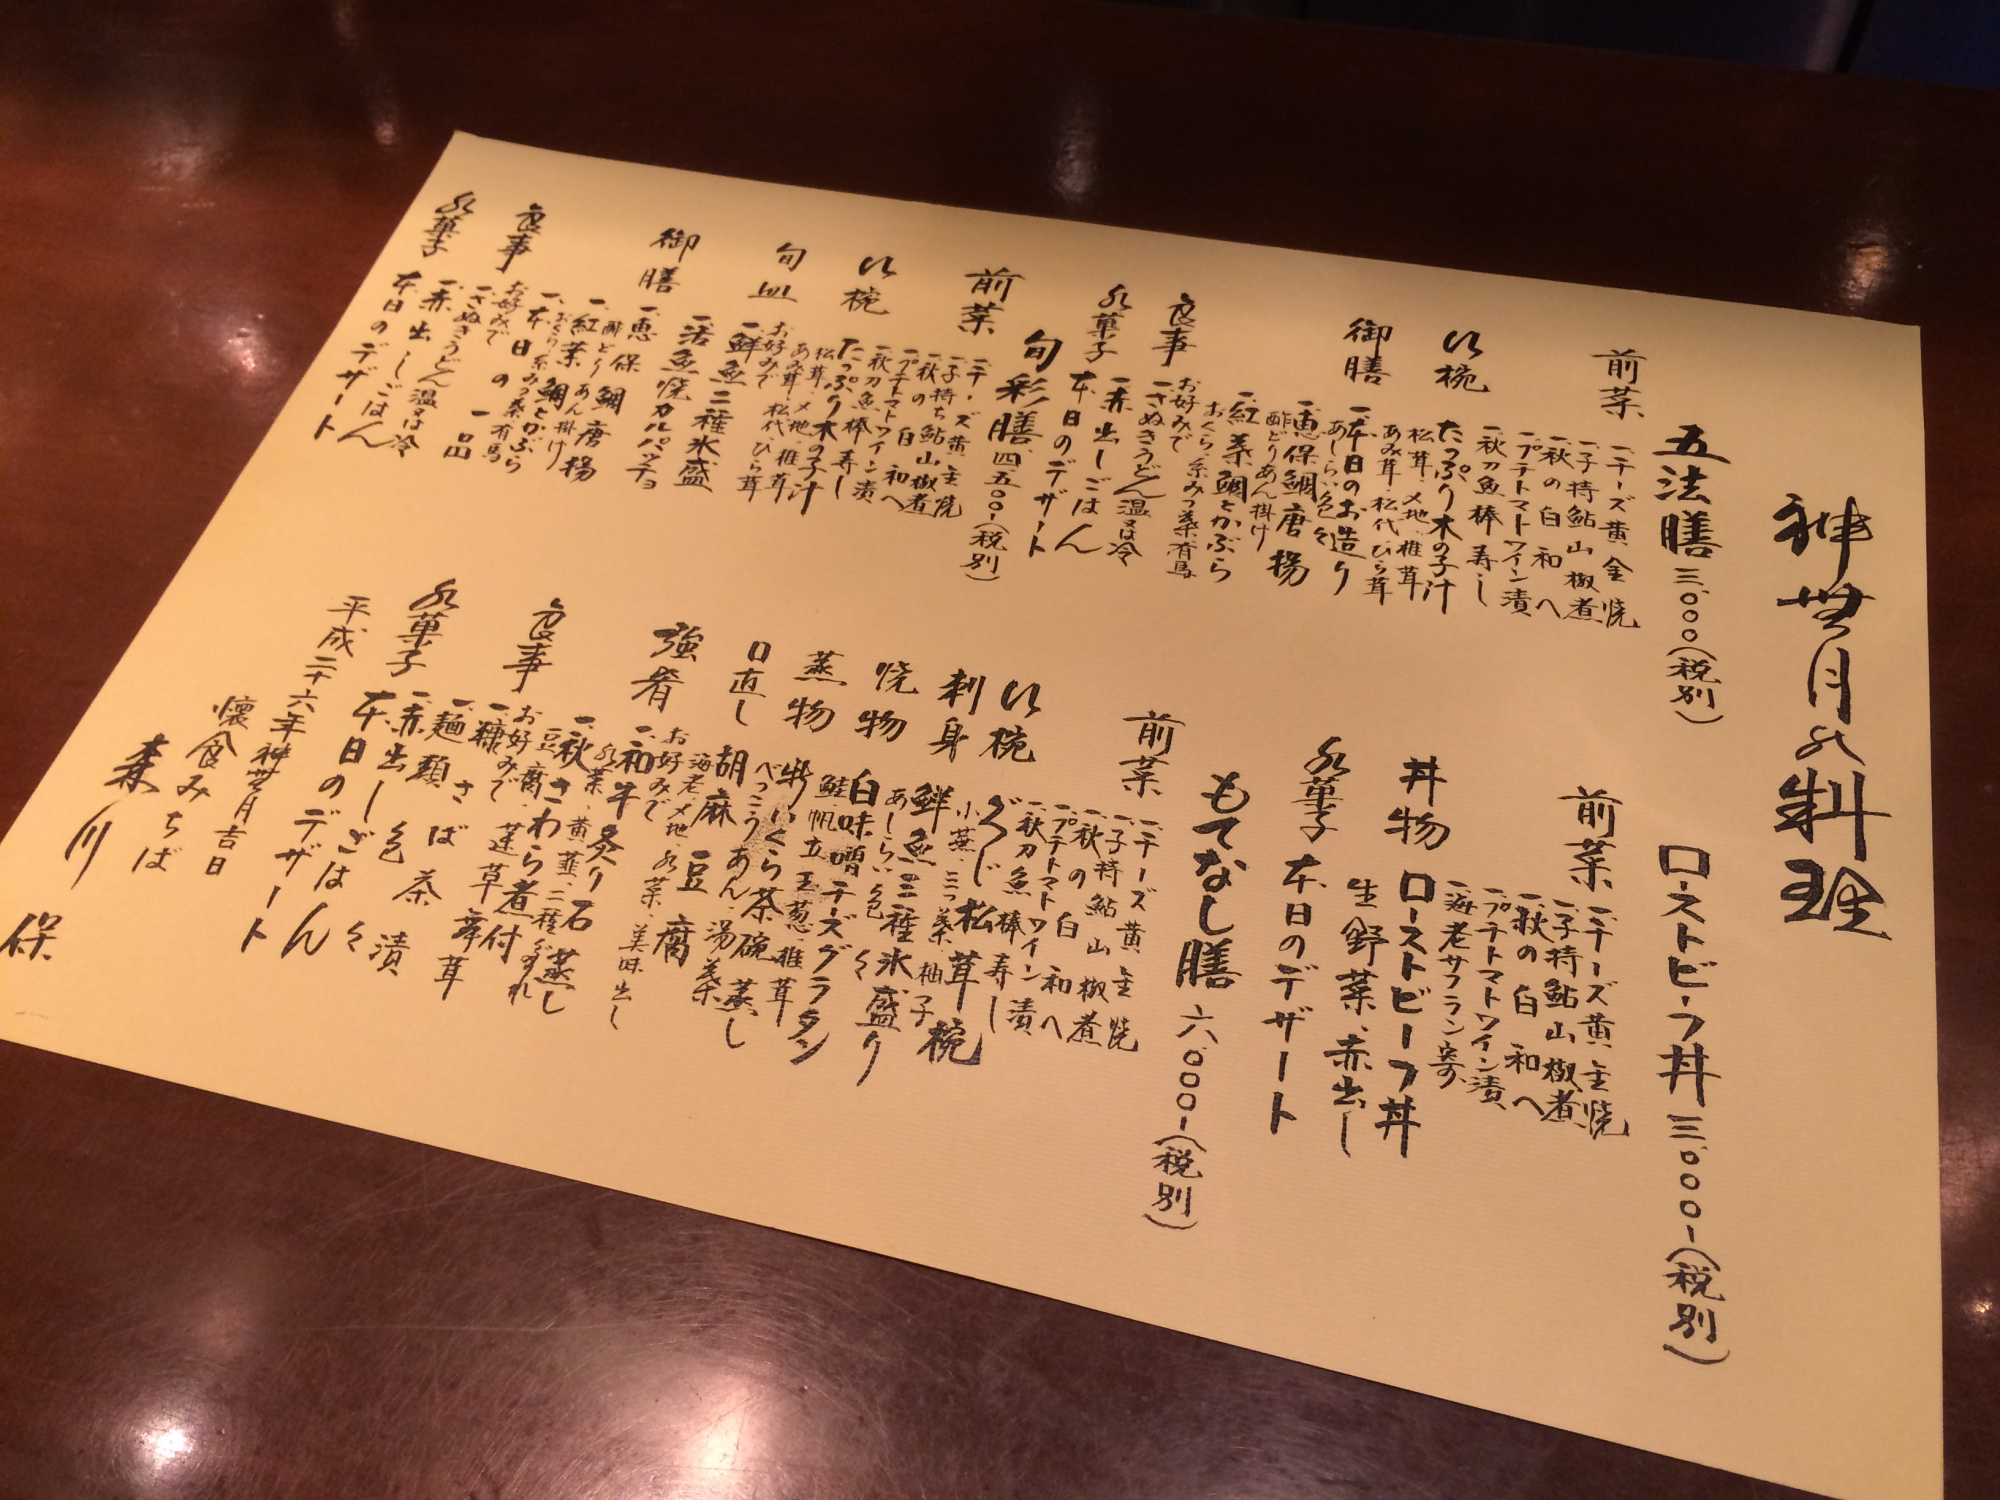 神無月の料理
五法膳 三.〇〇〇-(税別)
前菜
一、チーズ黄金焼
一、子持鮎山椒煮
一、秋の白和へ
一、プチトマトワイン漬
一、秋刀魚棒寿し
以椀
たっぷり木の子汁
松茸、〆地、椎茸
あみ茸、松代、ひら茸
御膳
一、本日のお造り
あしらい色々
一、恵保鯛唐揚
酢どりあん掛け
一、紅葉鯛とかぶら
おくら、糸みつ葉、有馬
食事
お好みで
一、さぬきうどん温又は冷
一、赤出しごはん
水菓子
本日のデザート
旬彩膳 四.五〇〇-(税別)
前菜
一、チーズ黄金焼
一、子持ち鮎山椒煮
一、秋の白和へ
一、プチトマトワイン漬
一、秋刀魚棒寿し
以椀
たっぷり木の子汁
松茸、〆地、椎茸
あみ茸、松代、ひら茸
旬皿
お好みで
一、鮮魚二種氷盛
一、活魚焼カルパッチョ
御膳
一、恵保鯛唐揚
酢どりあん掛け
一、紅葉鯛とかぶら
おくら、糸みつ葉、有馬
一、本日の一品
食事
お好みで
一、さぬきうどん温又は冷
一、赤出しごはん
水菓子
本日のデザート
ローストビーフ丼 三.〇〇〇-(税別)
前菜
一、チーズ黄金焼
一、子持鮎山椒煮
一、秋の白和へ
一、プチトマトワイン漬
一、海老サフラン寄
丼物
ローストビーフ丼
生野菜、赤出し
水菓子
本日のデザート
もてなし膳 六.〇〇〇-(税別)
前菜
一、チーズ黄金焼
一、子持鮎山椒煮
一、秋の白和へ
一、プチトマトワイン漬
一、秋刀魚棒寿し
以椀
ぐじ松茸椀
小蕪、三つ葉、柚子
刺身
鮮魚三種氷盛り
あしらい色々
焼物
白味噌チーズグラタン
鮭、帆立、玉葱、椎茸
蒸物
新いくら茶碗蒸し
べっこうあん、湯葉
口直し
胡麻豆腐
海老、〆地、水菜、美味出し
強肴
お好みで
一、和牛炙り石蒸し
水菜、黄韮、二種
一、秋さわら煮付
豆腐、蓬草、舞茸
食事
お好みで
一、糠さば茶漬
一、麺類色々
一、赤出しごはん
水菓子
本日のデザート
平成二十六年神無月吉日
懐食みちば
森川 保